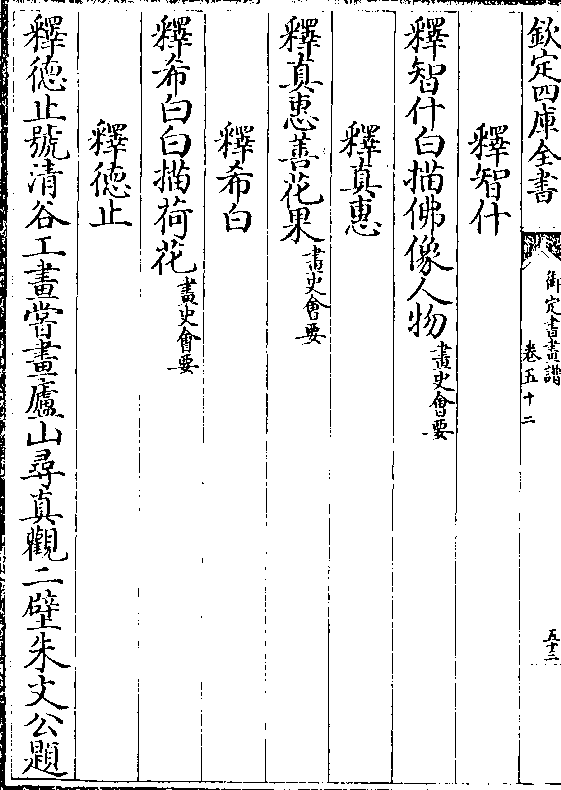 欽定四庫全書
御定書畫譜
卷五十二
五十三
釋智什
釋智什白描佛像人物畫史會要
釋真惠
釋真惠善花果畫史會要
釋希白
釋希白白描荷花畫史會要
釋德止
釋德止號清谷工畫嘗畫廬山尋真觀二壁朱文公題